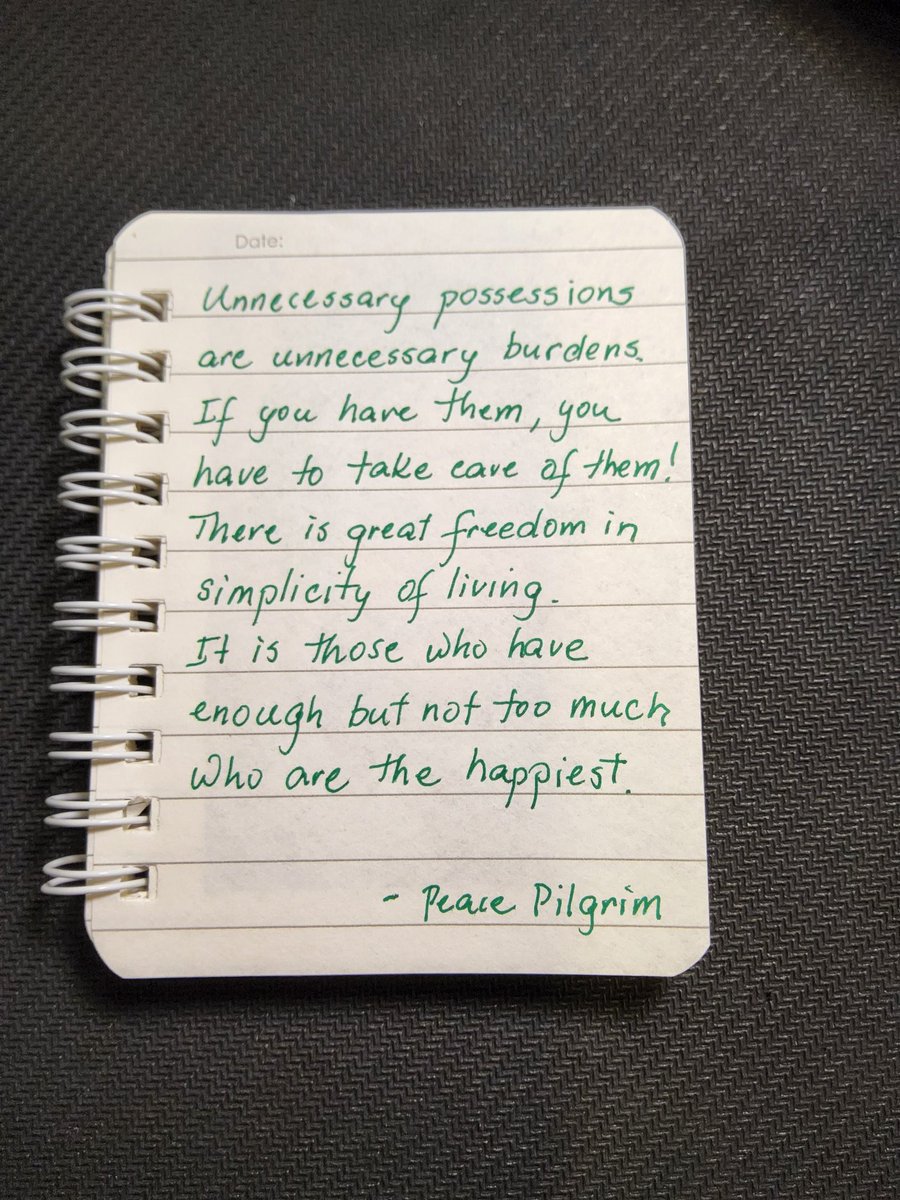 Date:
Unnecessary possessions
are unnecessary burdens.
If you have them, you
have to take care of them!
There is great freedom in
simplicity of living.
It is those who have
enough but not too much
who are the happiest.
- Peace Pilgrim